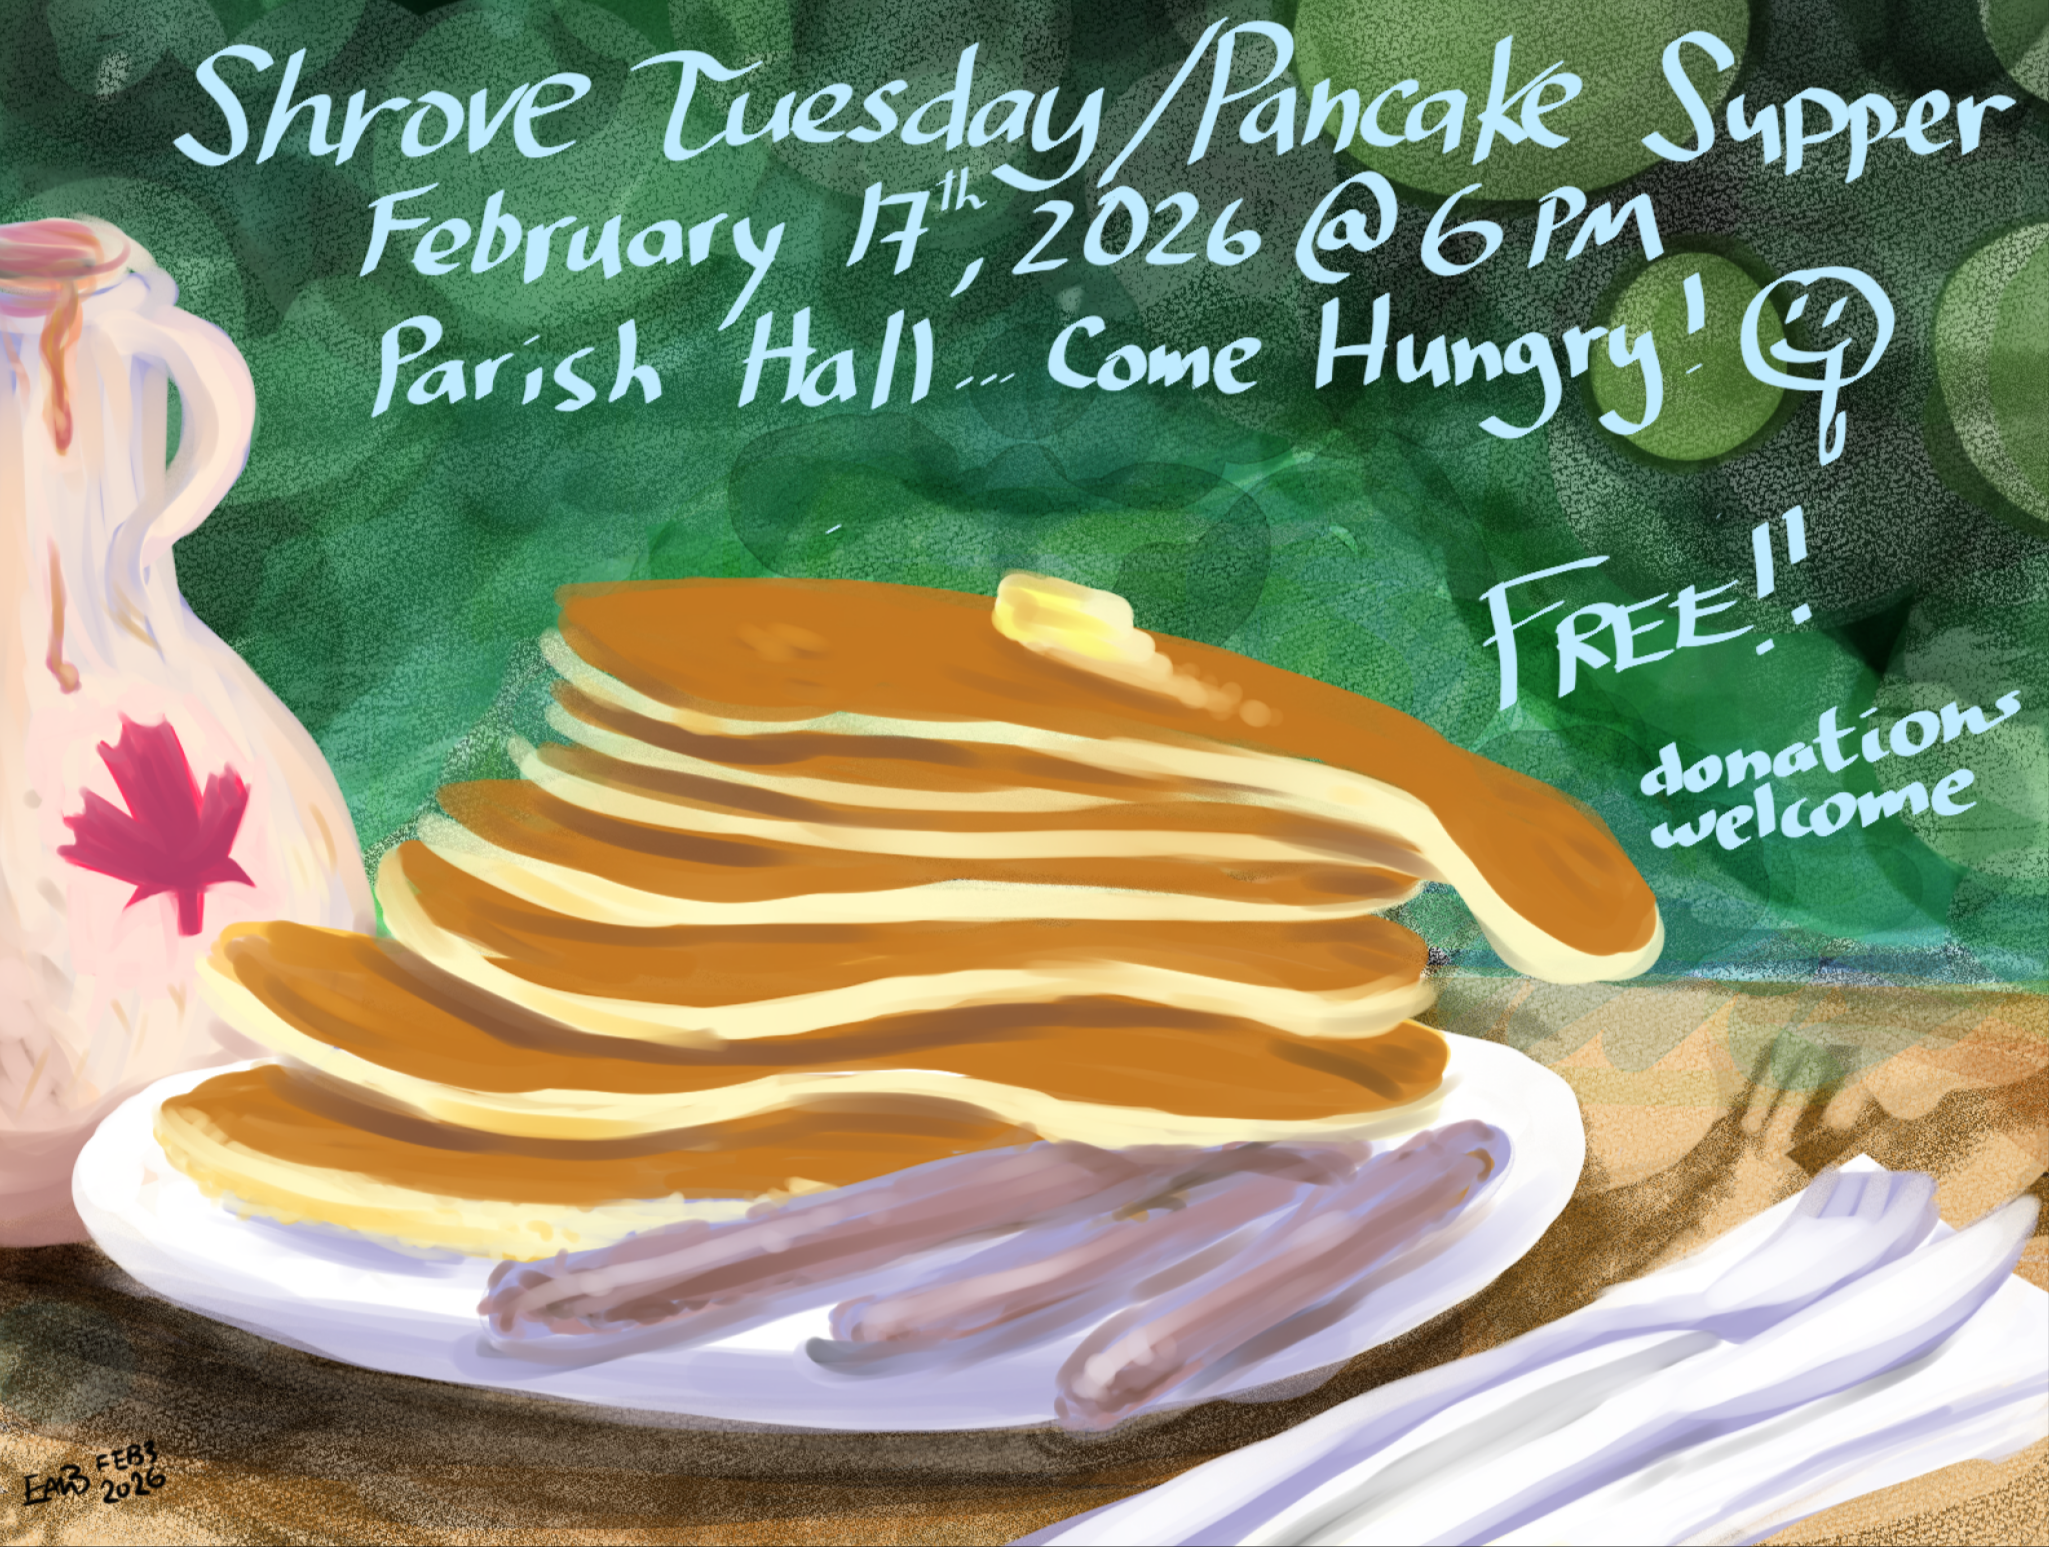 Shrove Tuesday/Pancake Supper
February 17th, 2026 @ 6 PM
Parish Hall... Come Hungry!
FREE!!
donations
welcome
EAB FEB 3
2026